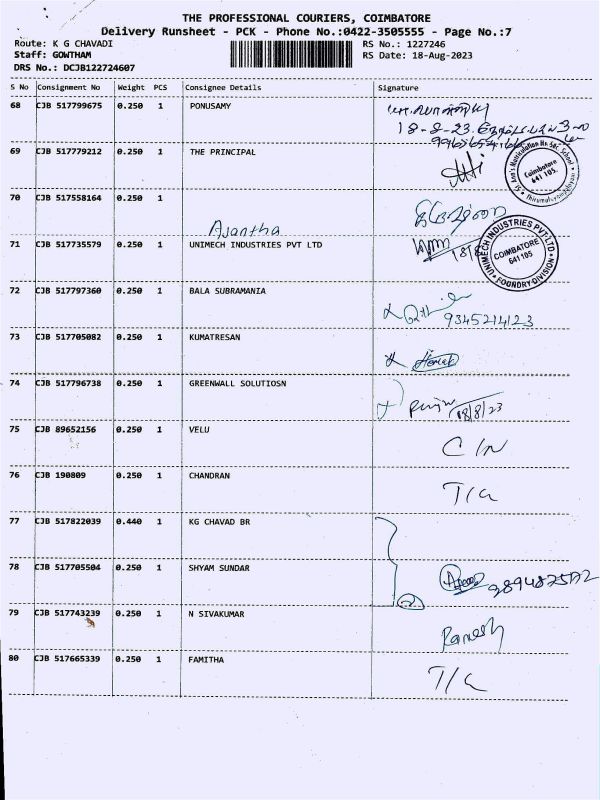 THE PROFESSIONAL COURIERS, COIMBATORE
Delivery Runsheet - PCK - Phone No.:0422-3505555 - Page No.:7
Route: K G CHAVADI RS No.: 1227246
Staff: GOWTHAM RS Date: 18-Aug-2023
DRS No.: DCJB122724607
S No Consignment No Weight PCS Consignee Details Signature
68 CJB 517799675 0.250 1 PONUSAMY
18-8-23
69 CJB 517779212 0.250 1 THE PRINCIPAL
St. Ann's Matriculation Hr. Sec. School Coimbatore 641 105. Thirumalayampalayam
70 CJB 517558164 0.250 1
Ajantha
71 CJB 517735579 0.250 1 UNIMECH INDUSTRIES PVT LTD 18/8
UNIMECH INDUSTRIES PVT. LTD COIMBATORE 641105 FOUNDRY DIVISION
72 CJB 517797360 0.250 1 BALA SUBRAMANIA
9345214123
73 CJB 517705082 0.250 1 KUMATRESAN
74 CJB 517796738 0.250 1 GREENWALL SOLUTIOSN
18/8/23
75 CJB 89652156 0.250 1 VELU
C/N
76 CJB 190809 0.250 1 CHANDRAN
T/C
77 CJB 517822039 0.440 1 KG CHAVAD BR
78 CJB 517705504 0.250 1 SHYAM SUNDAR
79 CJB 517743239 0.250 1 N SIVAKUMAR
Ramesh
80 CJB 517665339 0.250 1 FAMITHA
T/C